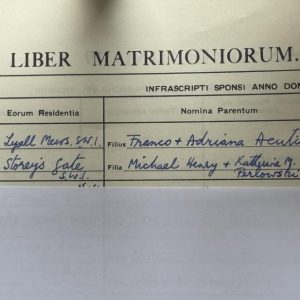 LIBER MATRIMONIORUM.
INFRASCRIPTI SPONSI ANNO DOM
Eorum Residentia Nomina Parentum
Lyall Mews. S.W.1. Filius Franco + Adriana Acuti
Storey's Gate Filia Michael Henry + Katherine M.
S.W.1. Perlowski